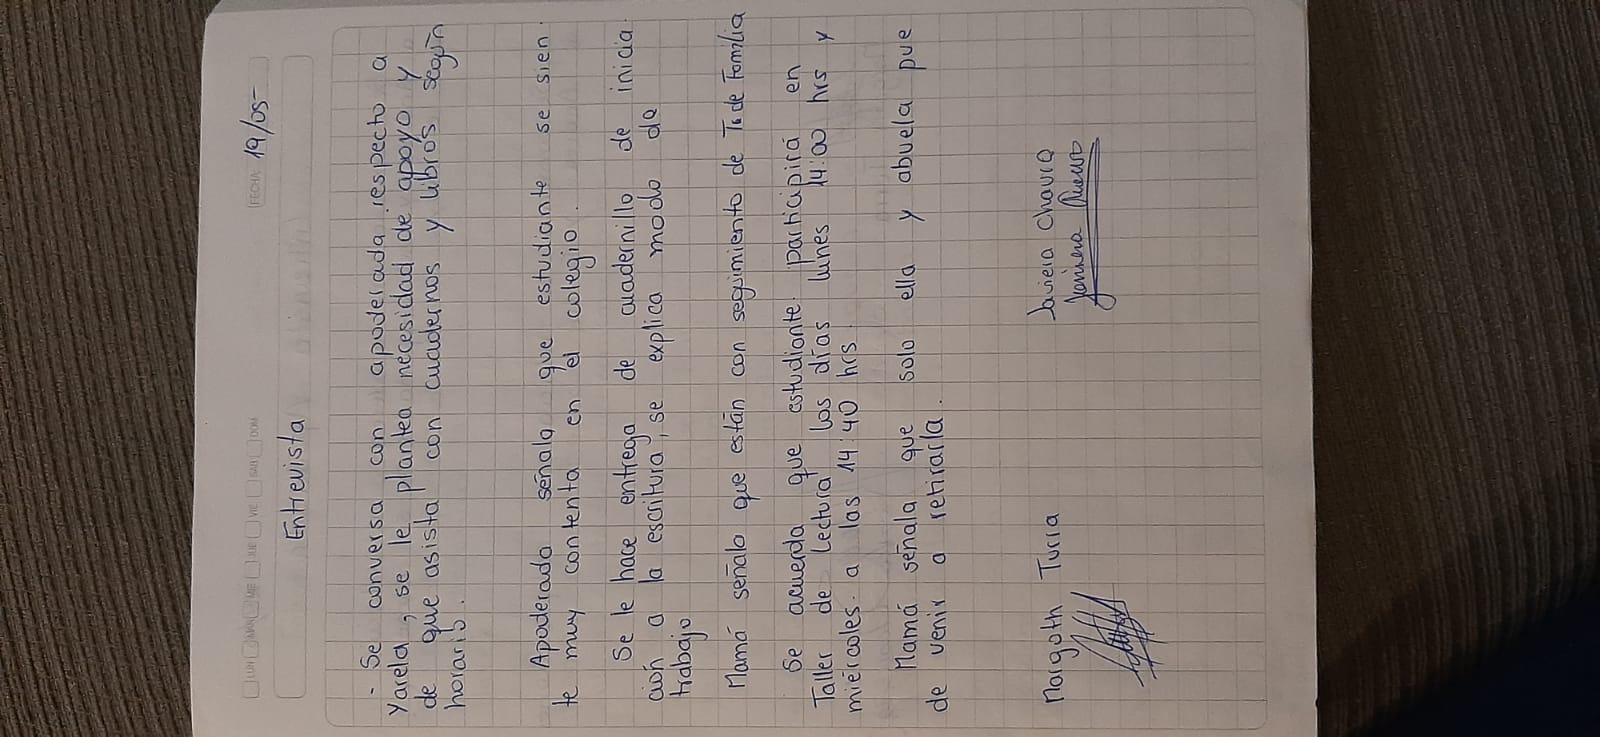 FECHA: 19/05
LUN MAR MIE JUE VIE SAB DOM
Entrevista
- Se conversa con apoderada respecto a
Yarela, se le plantea necesidad de apoyo y
de que asista con cuadernos y libros según
horario.
Apoderada señala que estudiante se sien
te muy contenta en el colegio.
Se le hace entrega de cuadernillo de inicia
ción a la escritura, se explica modo de
trabajo
Mamá señalo que están con seguimiento de T. de Familia
Se acuerda que estudiante participirá en
Taller de Lectura los días lunes 14:00 hrs y
miércoles a las 14:40 hrs.
Mamá señala que solo ella y abuela pue
de venir a retirarla.
Margoth Turra
Javiera Chavia